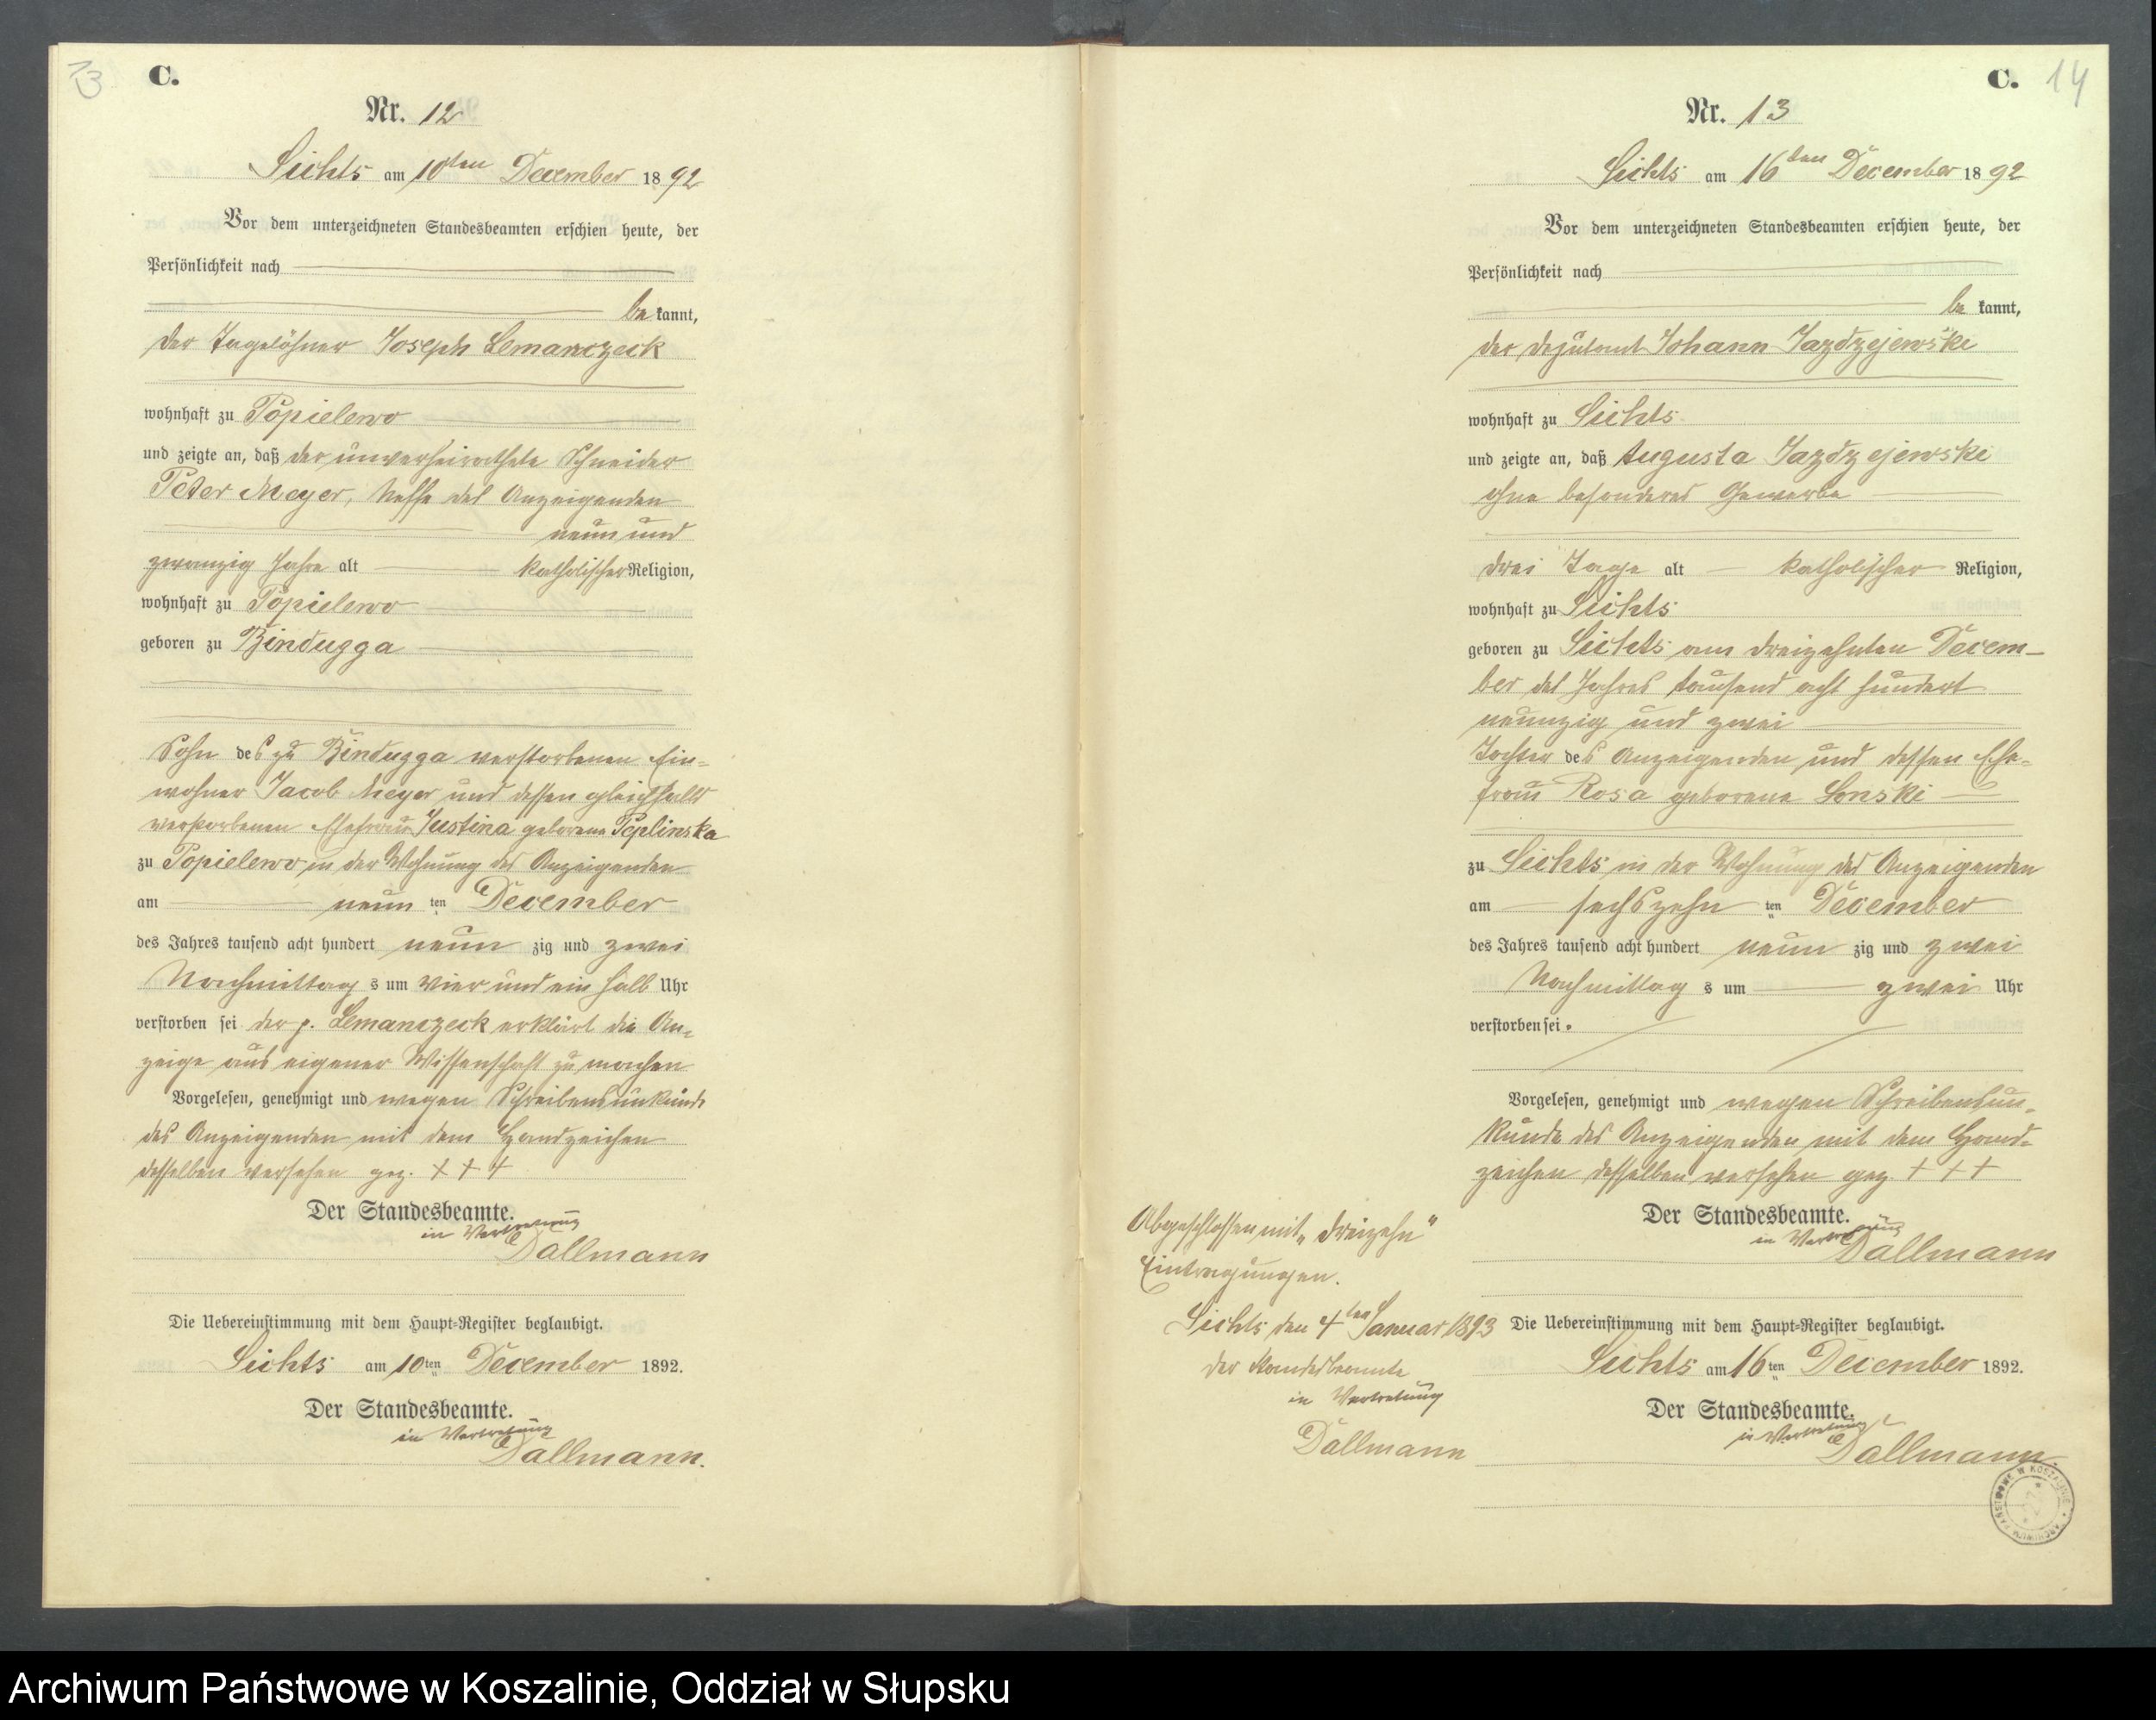 13
C.
Nr. 12
Lichts am 10ten December 1892
Vor dem unterzeichneten Standesbeamten erschien heute, der
Persönlichkeit nach
be kannt,
der Tagelöhner Joseph Lemanczeck
wohnhaft zu Popielewo
und zeigte an, daß der unverheirathete Schneider
Peter Meyer, Neffe des Anzeigenden
neun und
zwanzig Jahre alt katholischer Religion,
wohnhaft zu Popielewo
geboren zu Bindugga
Sohn des zu Bindugga verstorbenen Ein=
wohner Jacob Meyer und dessen gleichfalls
verstorbenen Ehefrau Justina geborene Peplinska
zu Popielewo in der Wohnung des Anzeigenden
am neun ten December
des Jahres tausend acht hundert neun zig und zwei
Nachmittag s um vier und ein halb Uhr
verstorben sei der p. Lemanczeck erklärt die An=
zeige aus eigener Wissenschaft zu machen
Vorgelesen, genehmigt und wegen Schreibensunkunde
des Anzeigenden mit dem Handzeichen
desselben versehen gez. + + +
Der Standesbeamte.
in Vertretung
Dallmann
Die Uebereinstimmung mit dem Haupt=Register beglaubigt.
Lichts am 10ten December 1892.
Der Standesbeamte.
in Vertretung
Dallmann.
C. 14
Nr. 13
Lichts am 16ten December 1892
Vor dem unterzeichneten Standesbeamten erschien heute, der
Persönlichkeit nach
be kannt,
der Deputant Johann Jazdzejewski
wohnhaft zu Lichts
und zeigte an, daß Augusta Jazdzejewski
ohne besonderes Gewerbe
drei Tage alt katholischer Religion,
wohnhaft zu Lichts
geboren zu Lichts am dreizehnten Decem-
ber des Jahres tausend acht hundert
neunzig und zwei
Tochter des Anzeigenden und dessen Ehe=
frau Rosa geborene Lonski
zu Lichts in der Wohnung des Anzeigenden
am sechszehn ten December
des Jahres tausend acht hundert neun zig und zwei
Nachmittag s um zwei Uhr
verstorben sei.
Vorgelesen, genehmigt und wegen Schreibensun=
kunde des Anzeigenden mit dem Hand=
zeichen desselben versehen gez + + +
Der Standesbeamte.
in Vertretung
Dallmann
Die Uebereinstimmung mit dem Haupt=Register beglaubigt.
Lichts am 16ten December 1892.
Der Standesbeamte.
in Vertretung
Dallmann.
Abgeschlossen mit „dreizehn“
Eintragungen.
Lichts den 4ten Januar 1893
Der Standesbeamte
in Vertretung
Dallmann
ARCHIWUM PAŃSTWOWE W KOSZALINIE
Archiwum Państwowe w Koszalinie, Oddział w Słupsku